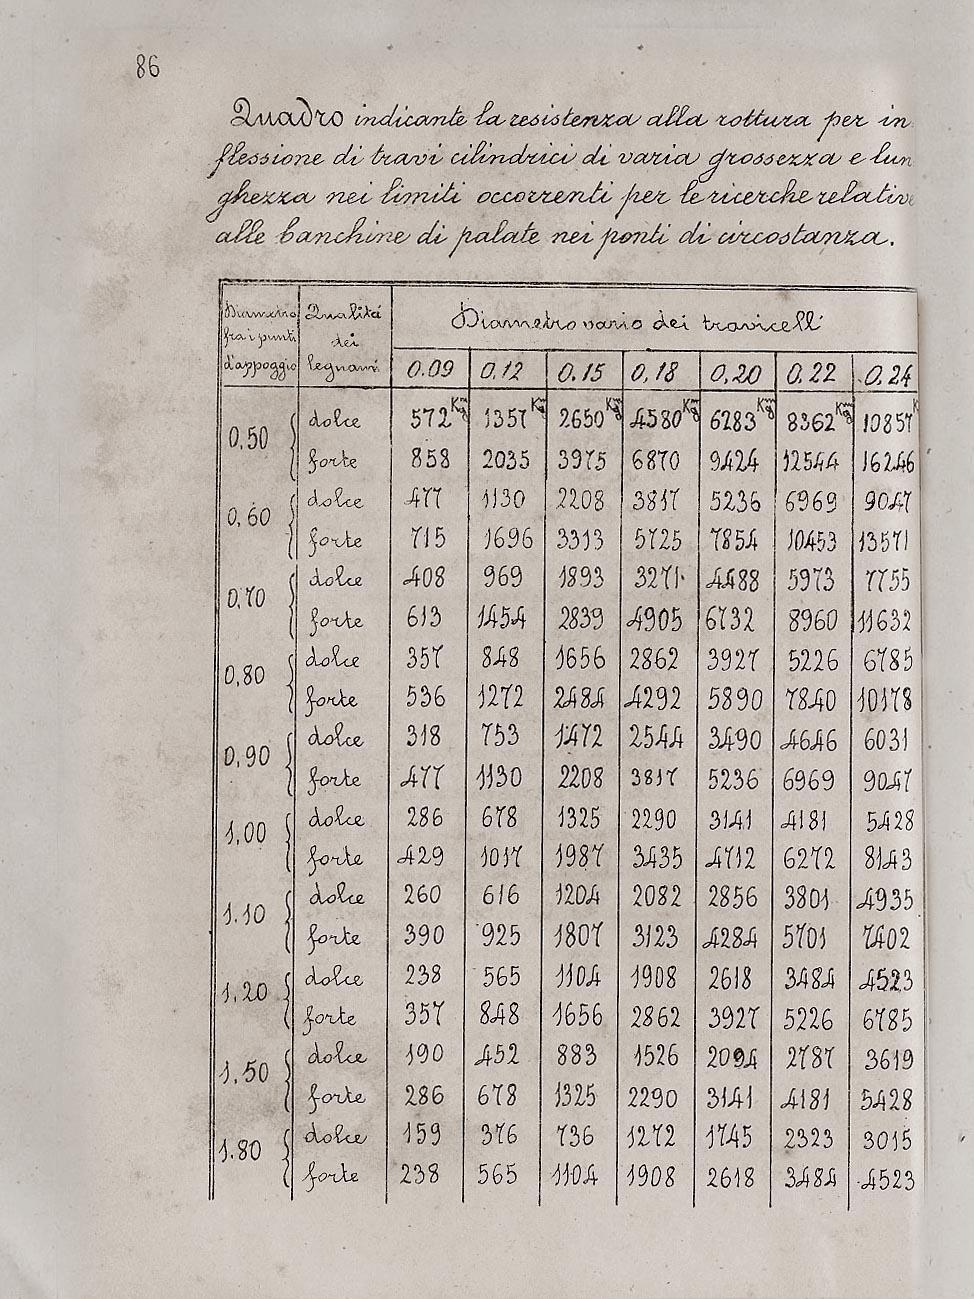 86
Quadro indicante la resistenza alla rottura per in
flessione di travi cilindrici di varia grossezza e lun
ghezza nei limiti occorrenti per le ricerche relative
alle banchine di palate nei ponti di circostanza.
Diametro fra i punti d'appoggio Qualità dei legnami Diametro vario dei travicelli
0.09 0,12 0.15 0,18 0,20 0,22 0,24
0,50 dolce 572 Km 1357 Kg 2650 Kmg 4580 Kmg 6283 Kmg 8362 Kmg 10857 K
forte 858 2035 3975 6870 9424 12544 16246
0,60 dolce 477 1130 2208 3817 5236 6969 9047
forte 715 1696 3313 5725 7854 10453 13571
0,70 dolce 408 969 1893 3271 4488 5973 7755
forte 613 1454 2839 4905 6732 8960 11632
0,80 dolce 357 848 1656 2862 3927 5226 6785
forte 536 1272 2484 4292 5890 7840 10178
0,90 dolce 318 753 1472 2544 3490 4646 6031
forte 477 1130 2208 3817 5236 6969 9047
1,00 dolce 286 678 1325 2290 3141 4181 5428
forte 429 1017 1987 3435 4712 6272 8143
1.10 dolce 260 616 1204 2082 2856 3801 4935
forte 390 925 1807 3123 4284 5701 7402
1,20 dolce 238 565 1104 1908 2618 3484 4523
forte 357 848 1656 2862 3927 5226 6785
1,50 dolce 190 452 883 1526 2094 2787 3619
forte 286 678 1325 2290 3141 4181 5428
1.80 dolce 159 376 736 1272 1745 2323 3015
forte 238 565 1104 1908 2618 3484 4523